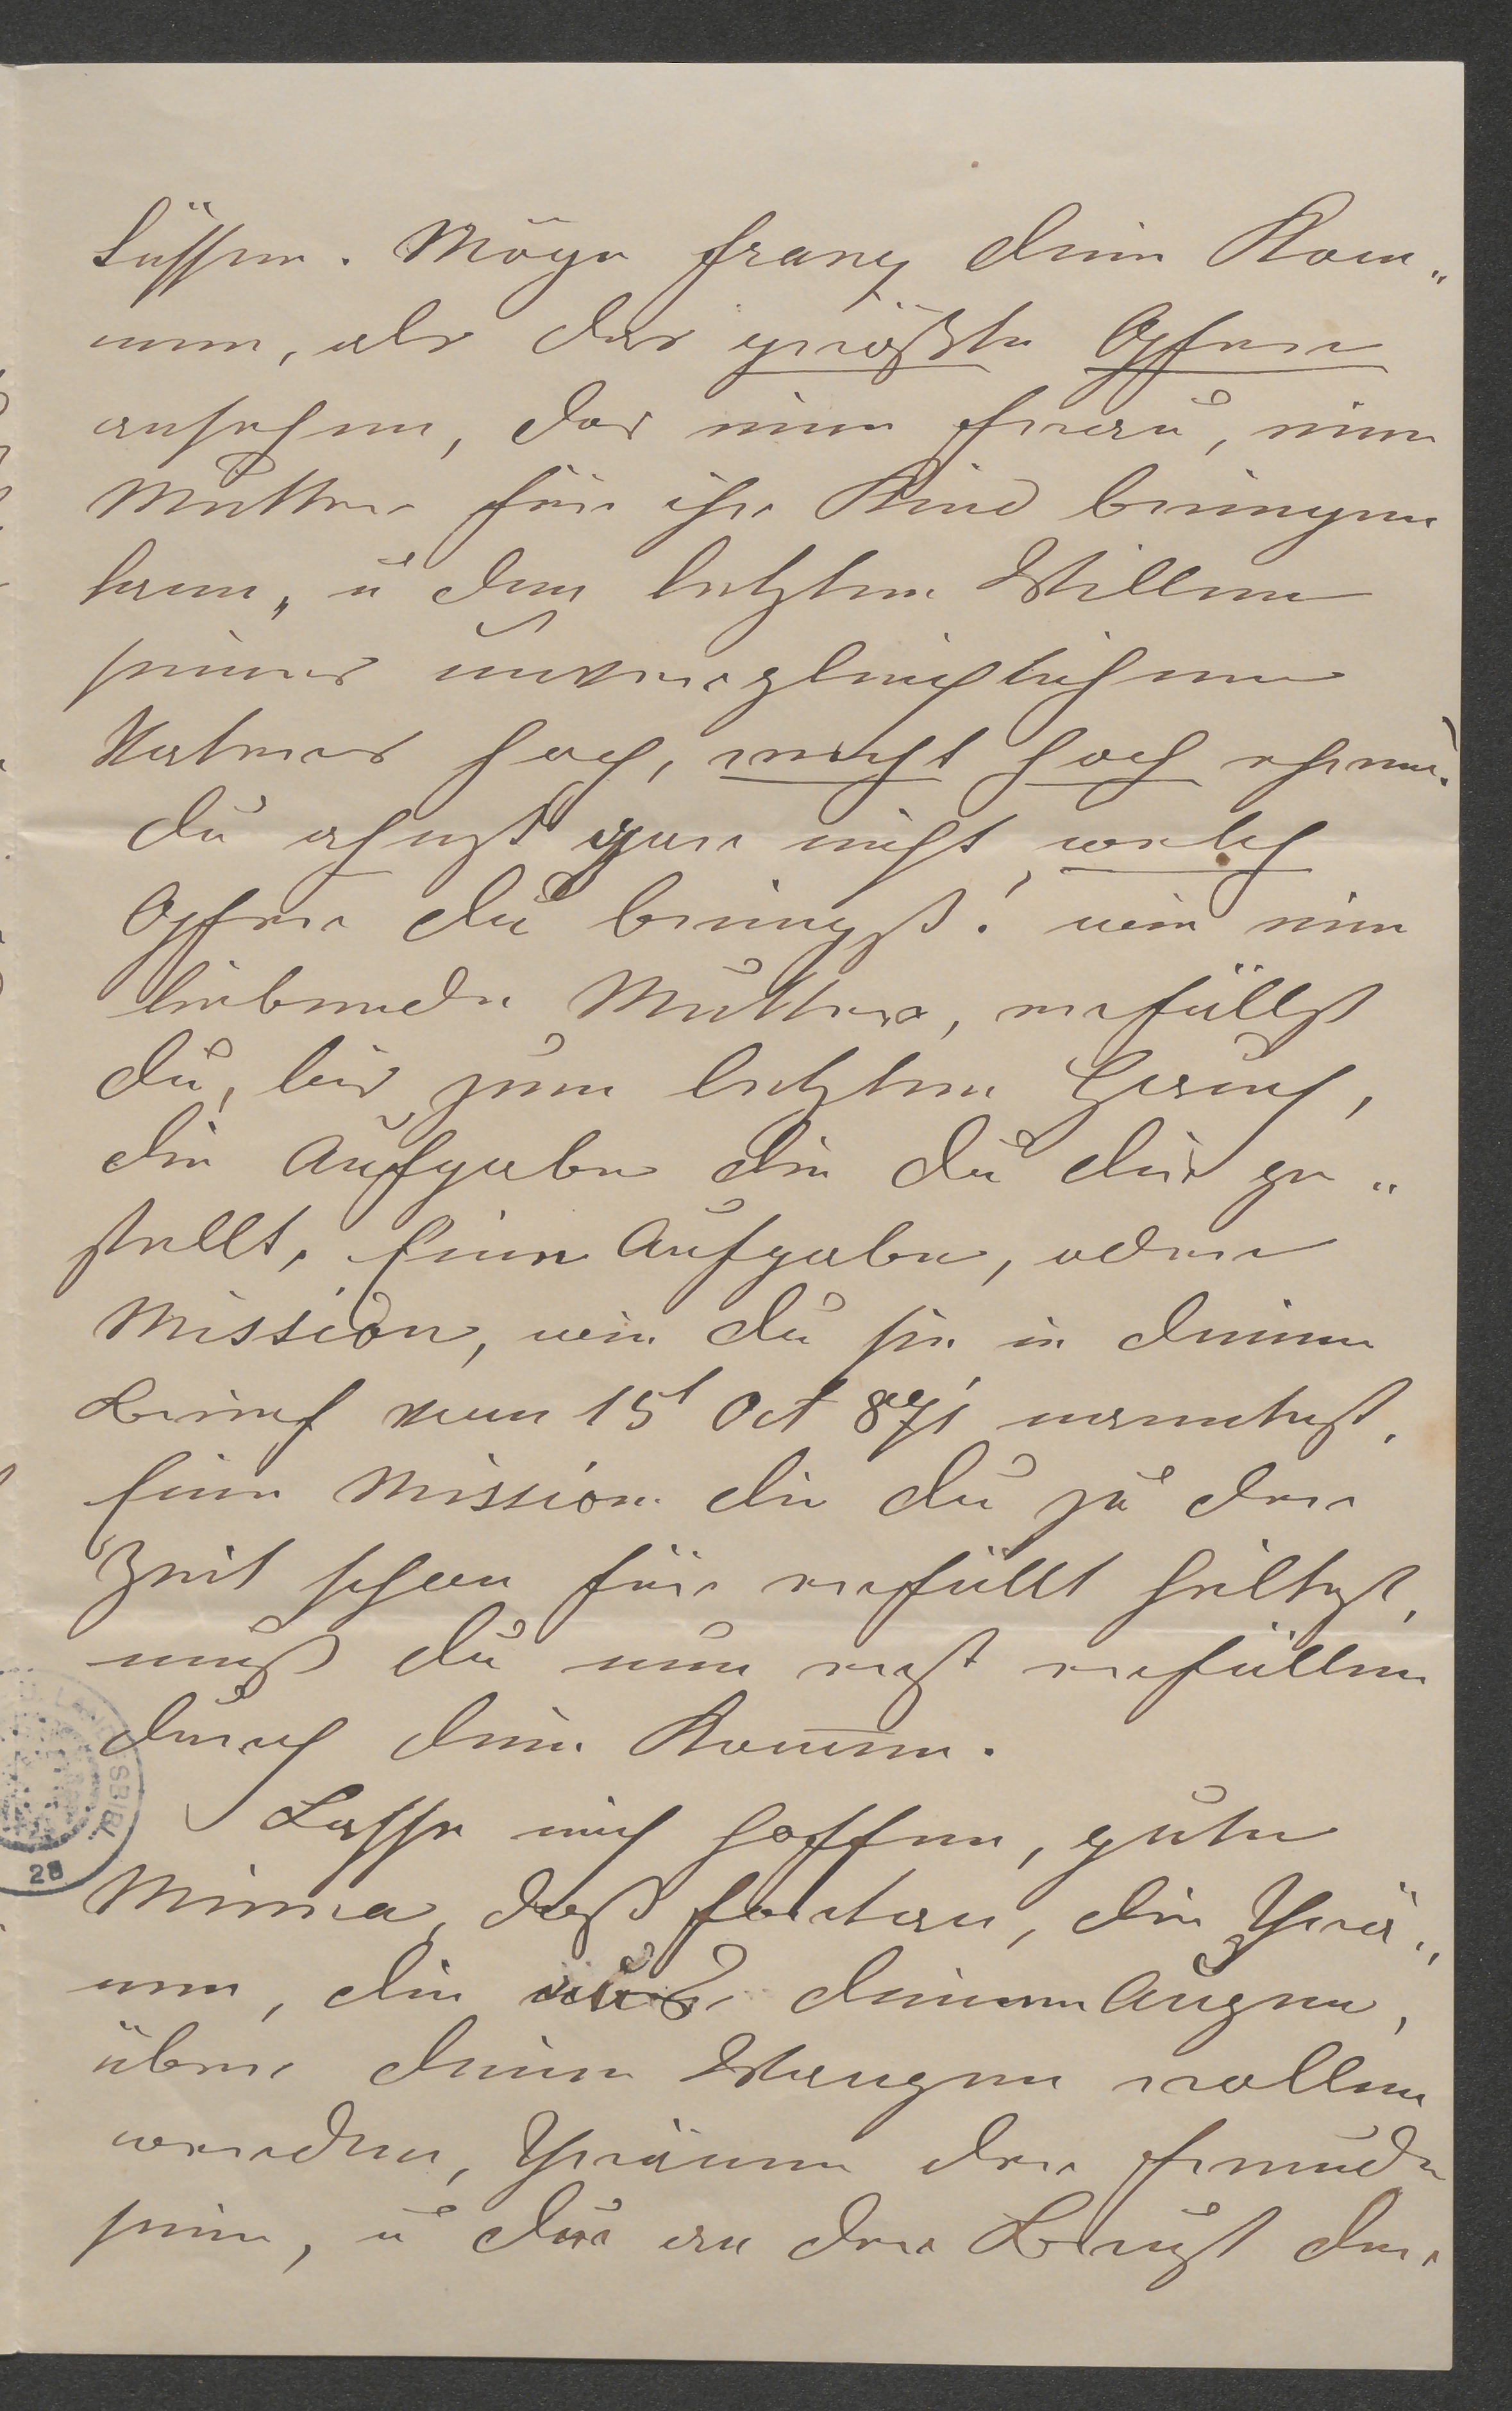 küssen. Möge Franz dein Kom„
men, als das größte Opfer
ansehen, das eine Frau, eine
Mutter für ihr Kind bringen
kann, u den letzten Willen
seines unvergleichlichen
Vaters hoch, recht hoch ehren.
du ahnst gar nicht, welch
Opfer du bringst! wie eine
liebende Mutter, erfüllst
du, bis zum letzten Hauch,
die Aufgabe die du dir ge„
stellt, Eine Aufgabe, oder
Mission, wie du sie in deinem
Brief vom 15t Oct 871 nanntest.
Eine Mission die du zu der
Zeit schon für erfüllt hieltest,
mußt du nun erst erfüllen
durch dein Kommen.
Lasse mich hoffen, gute
Minna, daß fortan, die Thrä„
nen, die aus deinen Augen,
über deine Wangen rollen
werden, Thränen der Freude
sein, u du an der Brust der
28